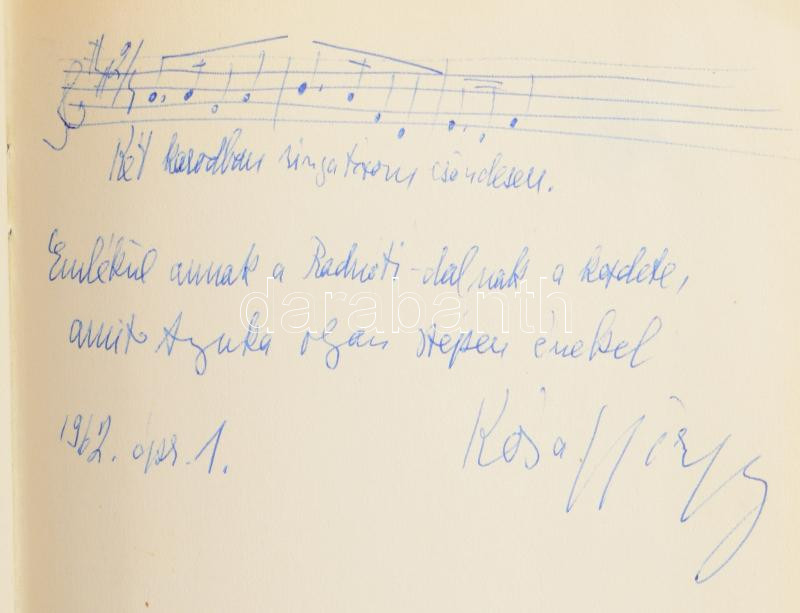 2/4
Két karodban ringatózom csöndesen.
Emlékül annak a Radnóti-dalnak a kezdete,
amit Ágnka olyan szépen énekel
1962. ápr. 1.
Kósa György
darabanth